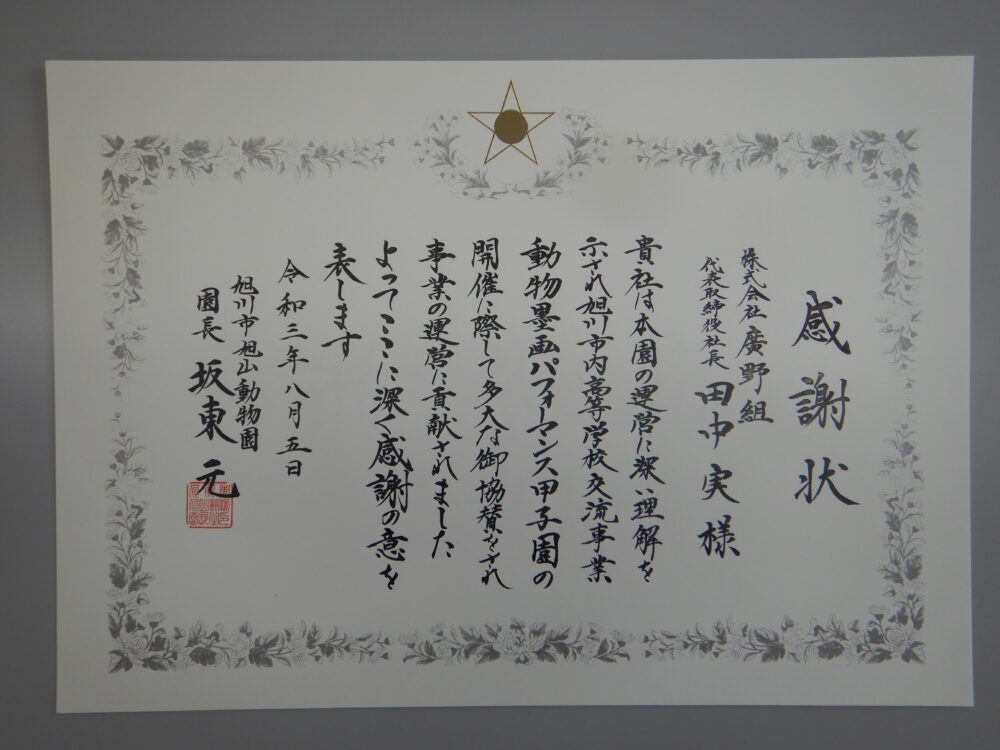 感謝状
株式会社 廣野組
代表取締役社長 田中 実 様
貴社は本園の運営に深い理解を
示され旭川市内高等学校交流事業
動物墨画パフォーマンス甲子園の
開催に際して多大な御協賛をされ
事業の運営に貢献されました
よってここに深く感謝の意を
表します
令和三年八月五日
旭川市旭山動物園
園長 坂東 元